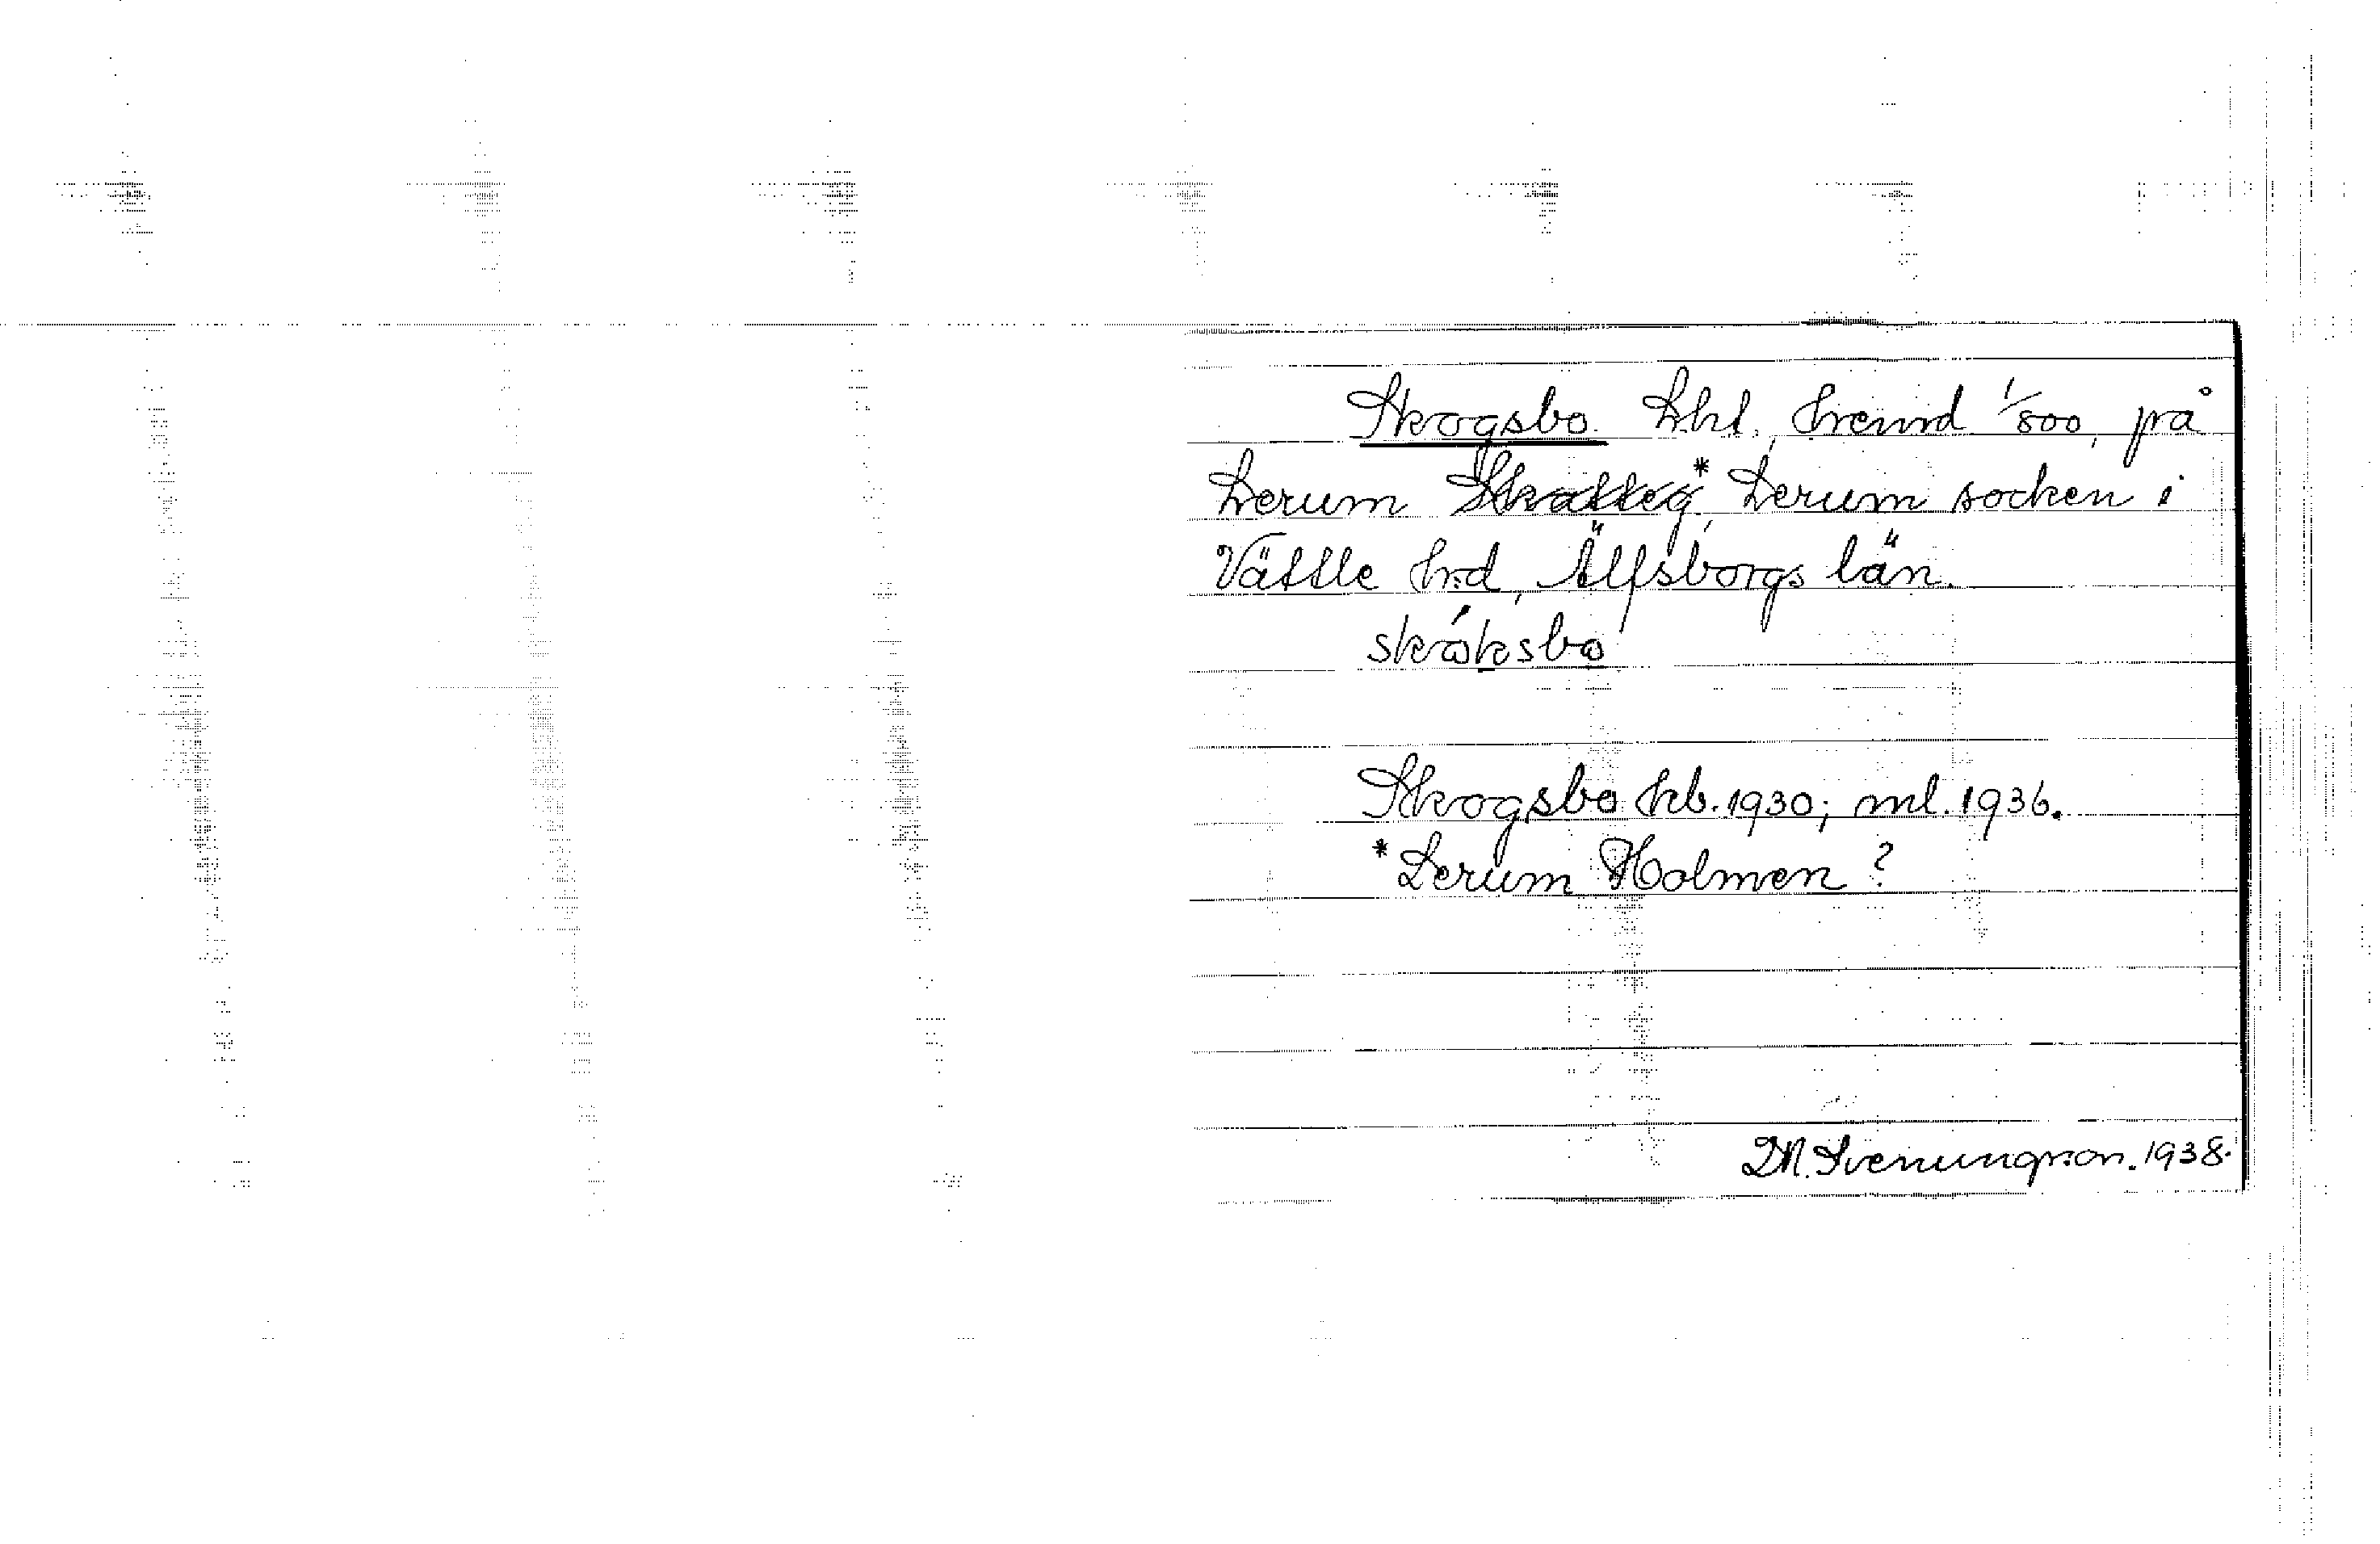 Skogsbo. Lht., hemmd 1/800, på
Lerum Skatteg*, Lerum socken i
Vättle hrd, Älfsborgs län.
skóksbo
Skogsbo kb. 1930; ml. 1936.
*Lerum Holmen?
M. Svenungsson. 1938.